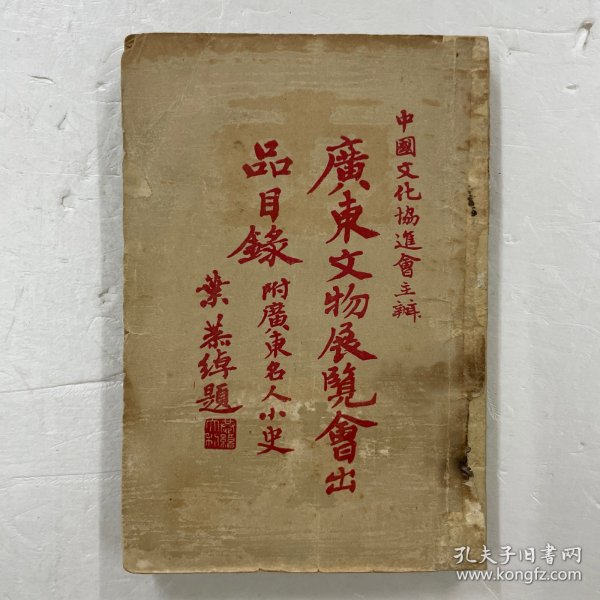 中國文化協進會主辦
廣東文物展覽會出
品目錄
附廣東名人小史
葉恭綽題
孔夫子旧书网
www.kongfz.com